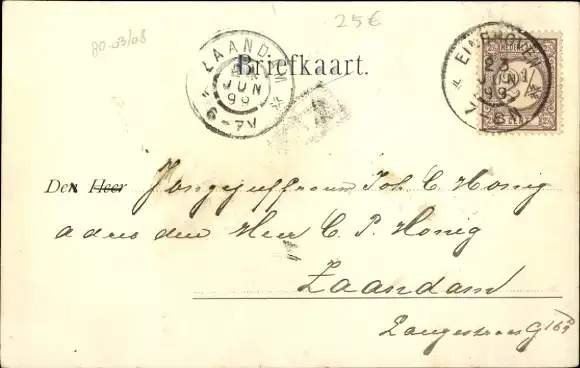 80-03/08
25€
ZAANDAM
JUN
99
6-7V
Briefkaart.
EINDHOVEN
23
JUN
99
7-8N
Den Heer Jongejuffrouw Joh. C. Honig
adres den Heer C. P. Honig
Zaandam